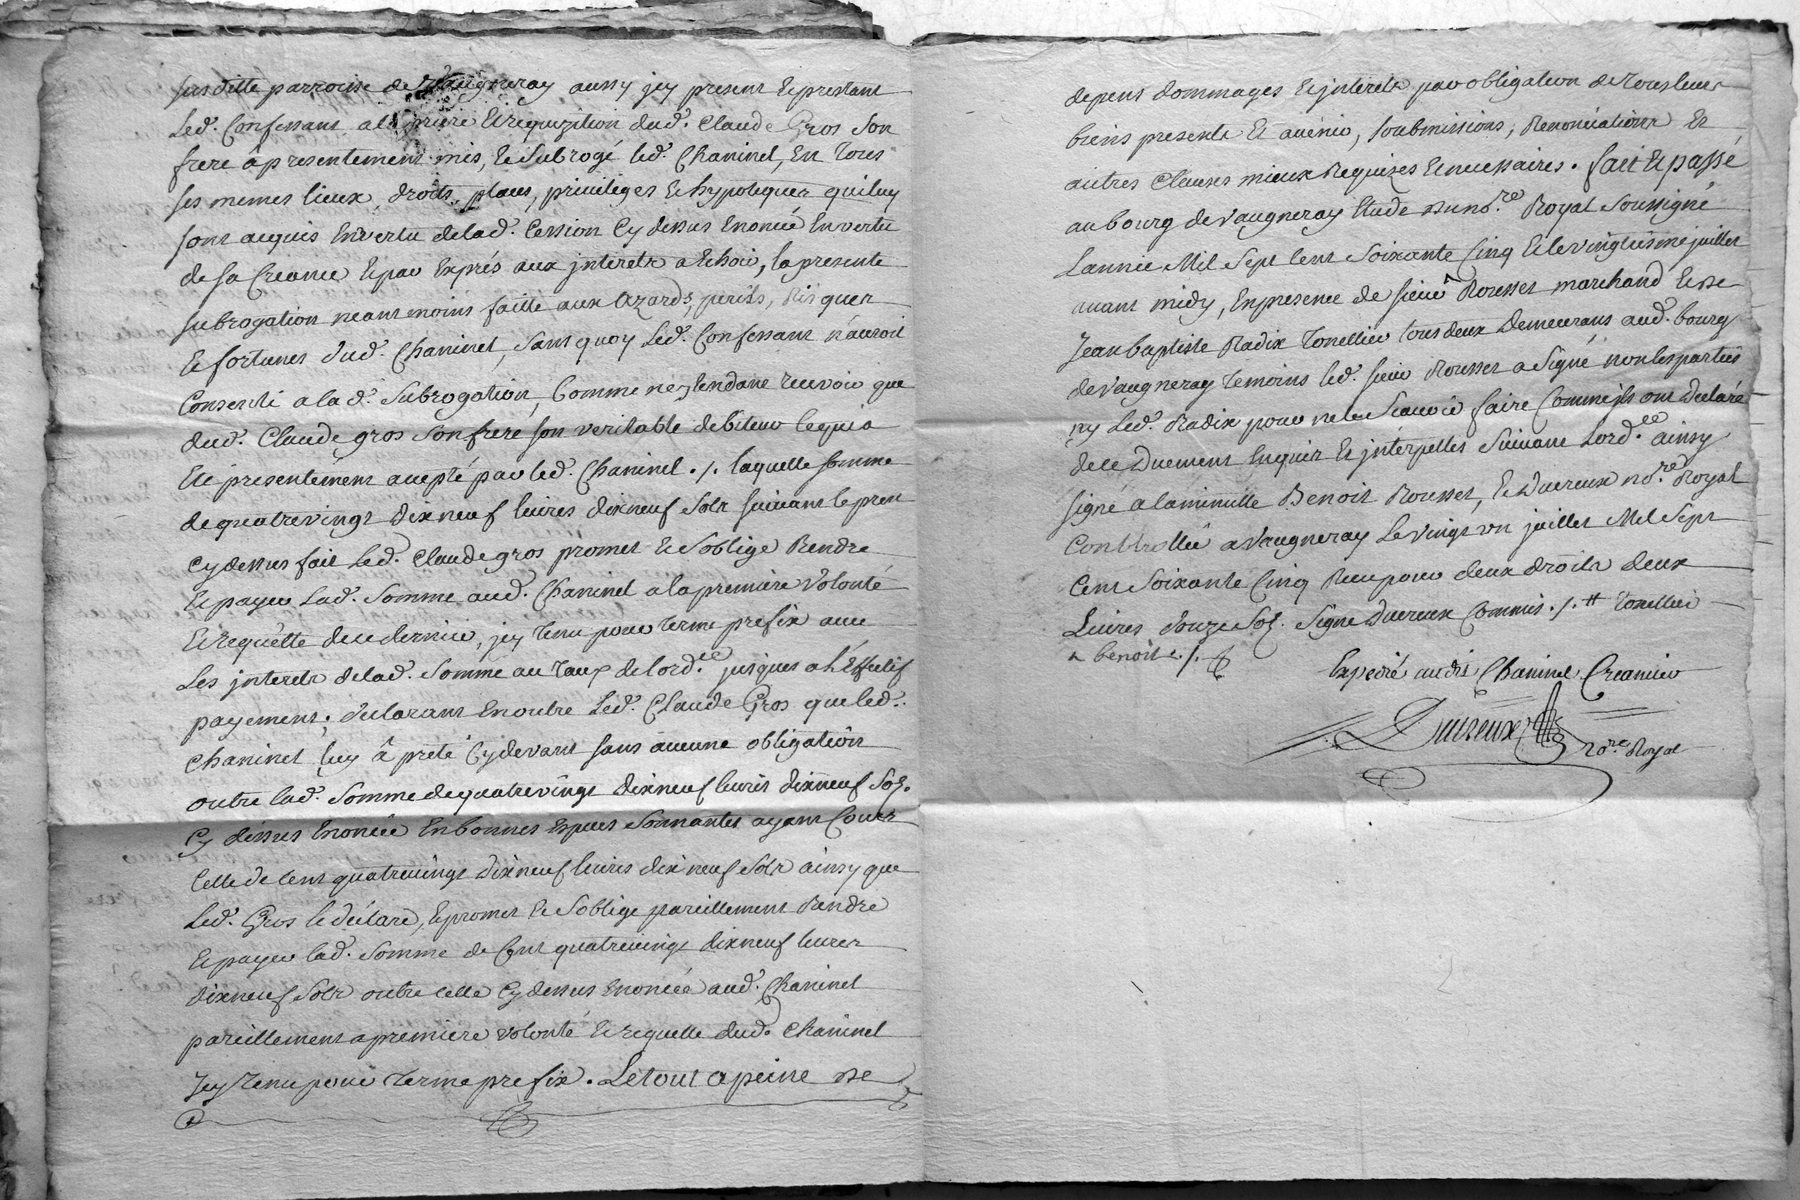 susditte parroisse de Vaugneray aussy jcy present Lequel estant
Led. Confessant, a la priere Et requizition dud. Claude Gros Son
frere â presentement mis, & Subrogé led. Chaninel, En Tous
ses memes lieux, droits, places, privileges & hypoteques qui luy
sont acquis En vertu de lad. Cession Cy dessus Enoncée En vertu
de sa Creance & par Exprés aux jnterets a Echoir, la presente
subrogation neantmoins faitte aux Azards, perils, Risques
& fortunes dud. Chaninel, Sans quoy Led. Confessant n'auroit
Consenti a lad. Subrogation, Comme n'Entendant recevoir que
dud. Claude gros Son frere son veritable debiteur Ce qui a
Eté presentément accepté par led. Chaninel ./. laquelle somme
de quatrevingt dix neuf livres dixneuf Sols suivant le
Cy dessus fait Led. Claude gros promet & S'oblige Rendre
Et payer Lad. Somme aud. Chaninel a la premiere Volonté
Et requêtte de ce dernier, jcy Tenu pour terme prefix avec
Les jnterets de lad. Somme au Taux de l'ord.ce jusques a l'Effectif
payement; declarant En outre Led. Claude Gros que led.
Chaninel luy â preté Cy devant sans aucune obligation
outre lad. Somme de quatrevingt dixneuf livres dixneuf Sols.
Cy dessus Enoncée En bonnes Especes Sonnantes ayant Cours
Celle de Cent quatrevingt dix neuf livres dix neuf Sols ainsy que
Led. Gros le déclare, & promet & S'oblige pareillement Rendre
Et payer lad. Somme de Cent quatrevingt dixneuf livres
dixneuf Sols outre celle Cy dessus Enoncée aud. Chaninel
pareillement a premiere Volonté Et requette dud. Chaninel
Jcy Tenu pour Terme prefix. Le tout a peine De
depens dommages & jnterets par obligation de Tous leurs
biens presents Et avenir, Soubmissions, Renonciations Et
autres Clauses mieux Requizes & necessaires. Fait & passé
au bourg de Vaugneray Etude Du no.re Royal Soussigné
L'année Mil Sept Cent Soixante Cinq & le vingtiéme juillet
avant midy, En presence de sieur ^ Rousset marchand & De
Jean baptiste Radix Tonellier tous deux Demeurans aud. bourg
de Vaugneray Temoins led. sieur Rousset a Signé non les parties
ny Led. Radix pour ne le Scavoir faire Comme jls ont Declaré
de ce Duement Enquis Et jnterpellés Suivant L'ord.ce ainsy
signé a la minutte Benoit Rousset, & Duvreux no.re Royal
Conttrollée a Vaugneray Le vingt un juillet Mil Sept
Cent Soixante Cinq Recu pour deux droits deux
Livres douze Sols. Signé Duvreux Commis ./. # Tonellier
^ benoit ./.
Expedié audit Chaninel Creancier
Duvreux
no.re Royal